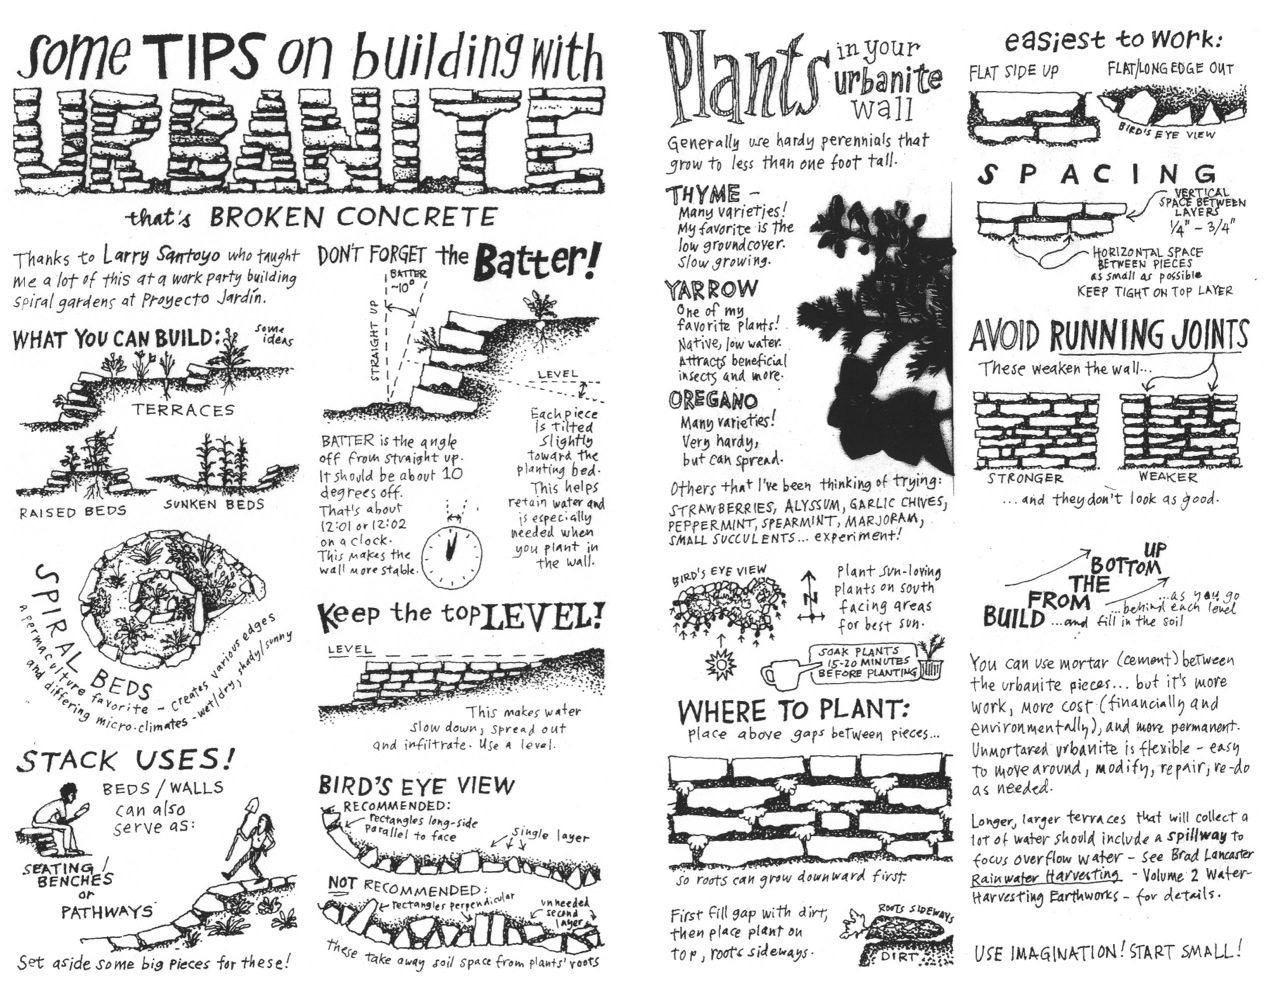 some TIPS on building with
URBANITE
that's BROKEN CONCRETE
Thanks to Larry Santoyo who taught
me a lot of this at a work party building
spiral gardens at Proyecto Jardín.
WHAT YOU CAN BUILD:
some
ideas
TERRACES
RAISED BEDS
SUNKEN BEDS
SPIRAL BEDS
a permaculture favorite - creates various edges
and differing micro-climates - wet/dry, shady/sunny
STACK USES!
BEDS / WALLS
can also
serve as:
SEATING /
BENCHES
or
PATHWAYS
Set aside some big pieces for these!
DON'T FORGET the Batter!
BATTER
~10°
STRAIGHT UP
LEVEL
BATTER is the angle
off from straight up.
It should be about 10
degrees off.
That's about
12:01 or 12:02
on a clock.
This makes the
wall more stable.
Each piece
is tilted
slightly
toward the
planting bed.
This helps
retain water and
is especially
needed when
you plant in
the wall.
Keep the top LEVEL!
LEVEL
This makes water
slow down, spread out
and infiltrate. Use a level.
BIRD'S EYE VIEW
RECOMMENDED:
rectangles long-side
parallel to face
single layer
NOT RECOMMENDED:
rectangles perpendicular
unneeded
second
layer
these take away soil space from plants' roots
Plants in your
urbanite
wall
Generally use hardy perennials that
grow to less than one foot tall.
THYME -
Many varieties!
My favorite is the
low groundcover.
Slow growing.
YARROW
One of my
favorite plants!
Native, low water.
Attracts beneficial
insects and more.
OREGANO
Many varieties!
Very hardy,
but can spread.
Others that I've been thinking of trying:
STRAWBERRIES, ALYSSUM, GARLIC CHIVES,
PEPPERMINT, SPEARMINT, MARJORAM,
SMALL SUCCULENTS... experiment!
BIRD'S EYE VIEW
N
Plant sun-loving
plants on south
facing areas
for best sun.
SOAK PLANTS
15-20 MINUTES
BEFORE PLANTING
WHERE TO PLANT:
place above gaps between pieces...
so roots can grow downward first.
First fill gap with dirt,
then place plant on
top, roots sideways.
ROOTS SIDEWAYS
DIRT
easiest to work:
FLAT SIDE UP
FLAT/LONG EDGE OUT
BIRD'S EYE VIEW
SPACING
VERTICAL
SPACE BETWEEN
LAYERS
1/4" - 3/4"
HORIZONTAL SPACE
BETWEEN PIECES
as small as possible
KEEP TIGHT ON TOP LAYER
AVOID RUNNING JOINTS
These weaken the wall...
STRONGER
WEAKER
...and they don't look as good.
BUILD FROM THE BOTTOM UP
...and fill in the soil
...behind each level
...as you go
You can use mortar (cement) between
the urbanite pieces... but it's more
work, more cost (financially and
environmentally), and more permanent.
Unmortared urbanite is flexible - easy
to move around, modify, repair, re-do
as needed.
Longer, larger terraces that will collect a
lot of water should include a spillway to
focus overflow water - see Brad Lancaster
Rainwater Harvesting - Volume 2 Water-
Harvesting Earthworks - for details.
USE IMAGINATION! START SMALL!